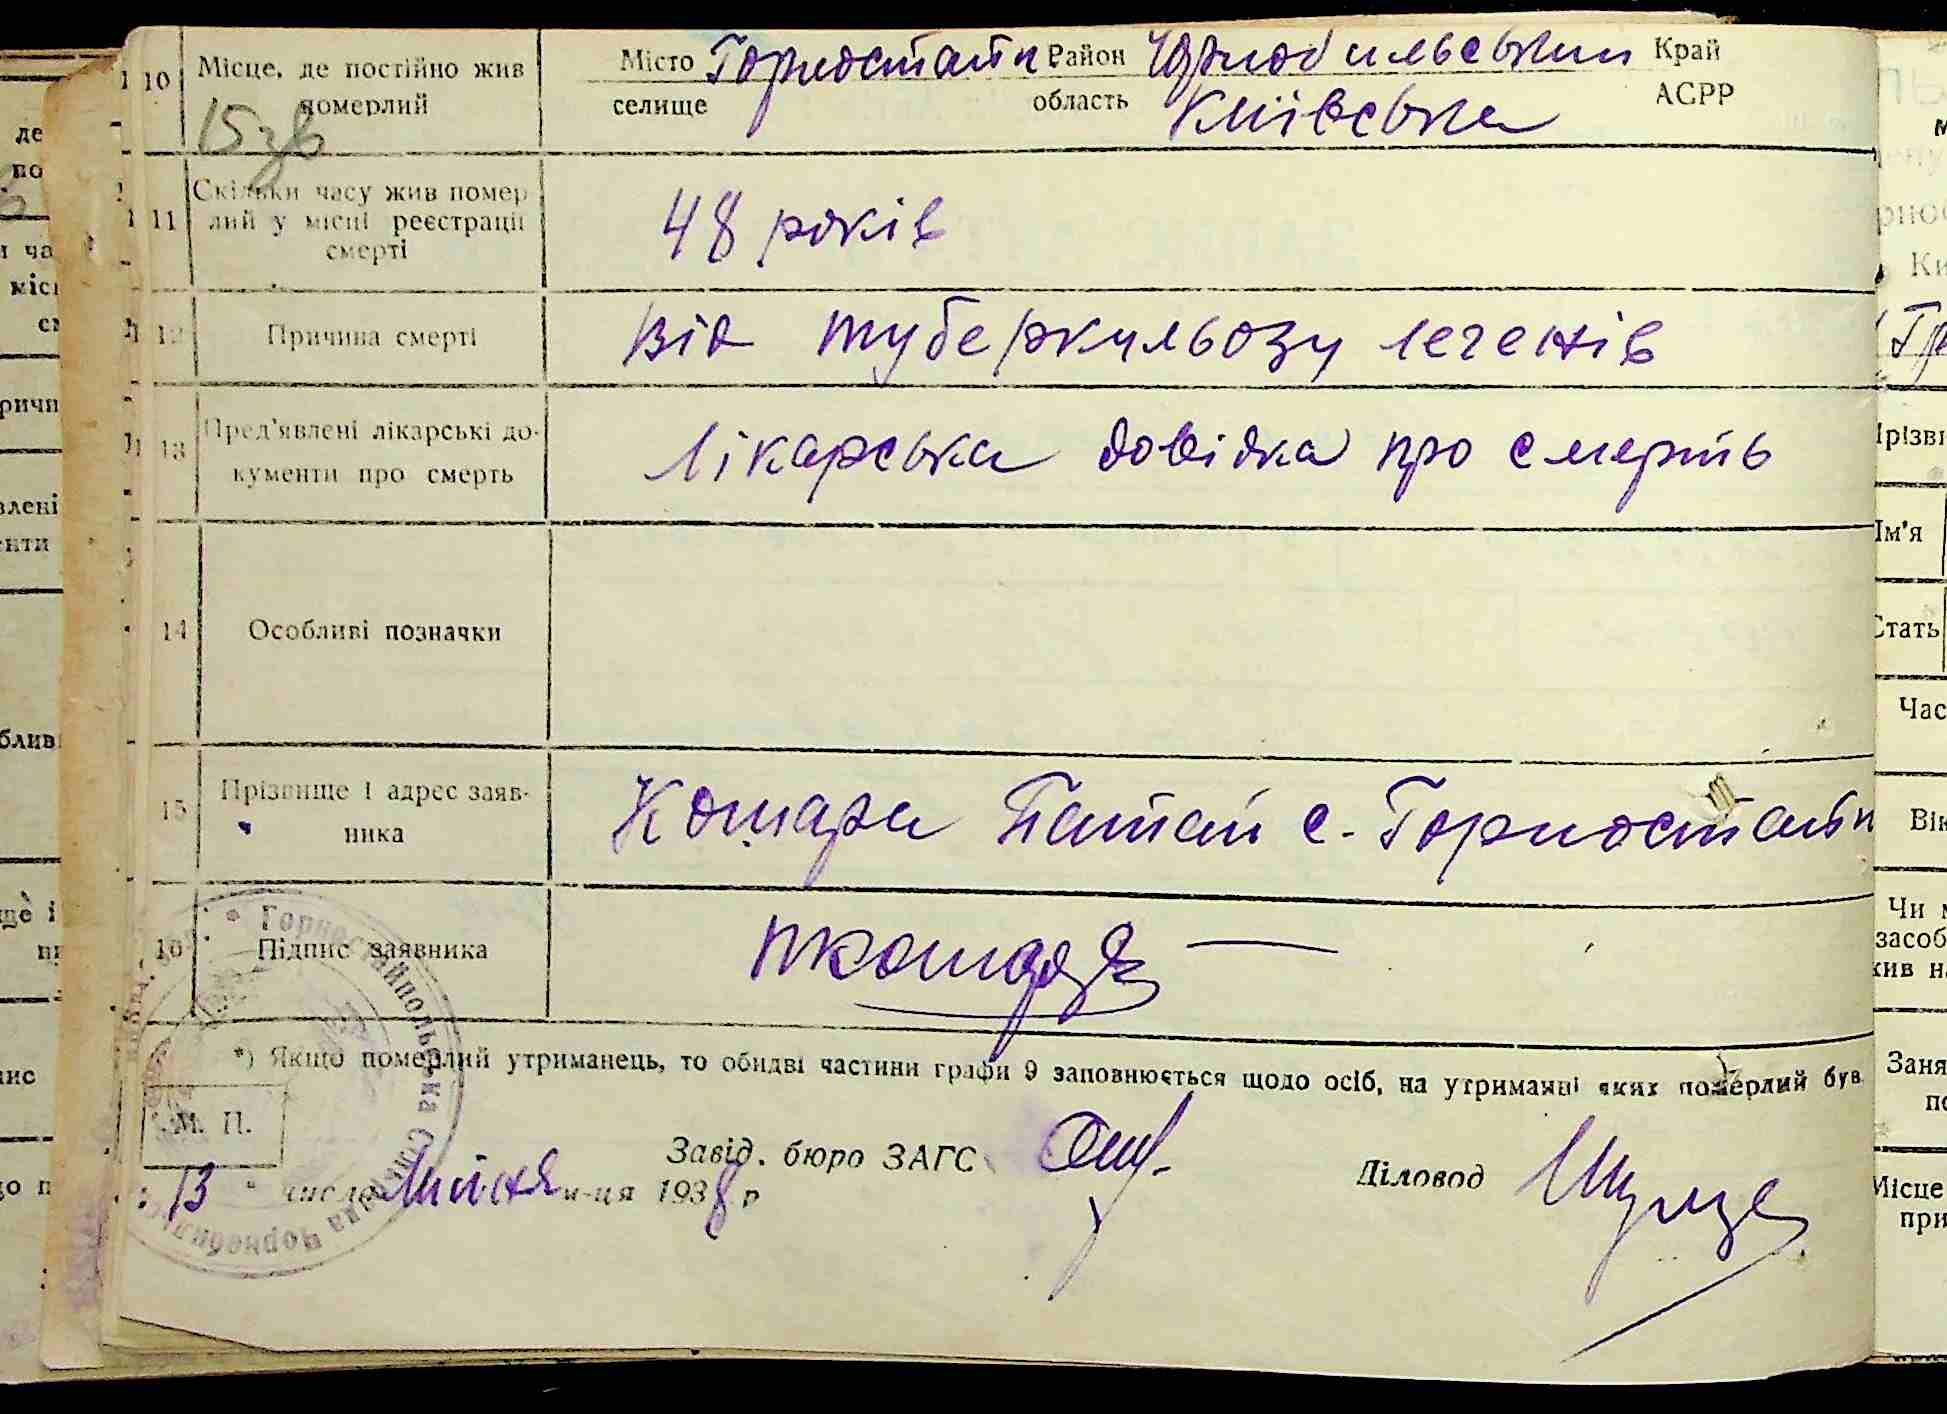 10 Місце, де постійно жив померлий
15 зв
Місто Горностайп. Район Чорнобильський Край
селище область Київська АСРР
11 Скільки часу жив помер
лий у місці реєстрації
смерті
48 років
12 Причина смерті Від туберкульозу легенів
13 Пред'явлені лікарські до-
кументи про смерть
Лікарська довідка про смерть
14 Особливі позначки
15 Прізвище і адрес заяв-
ника
Кошара с. Горностайп
16 Підпис заявника
*) Якщо померлий утриманець, то обидві частини графи 9 заповнюється щодо осіб, на утриманні яких померлий був
М. П.
Завід. бюро ЗАГС Діловод
13 " числа м-ця 1938 р
* Горностайпольська Сільська Рада Чорнобильс